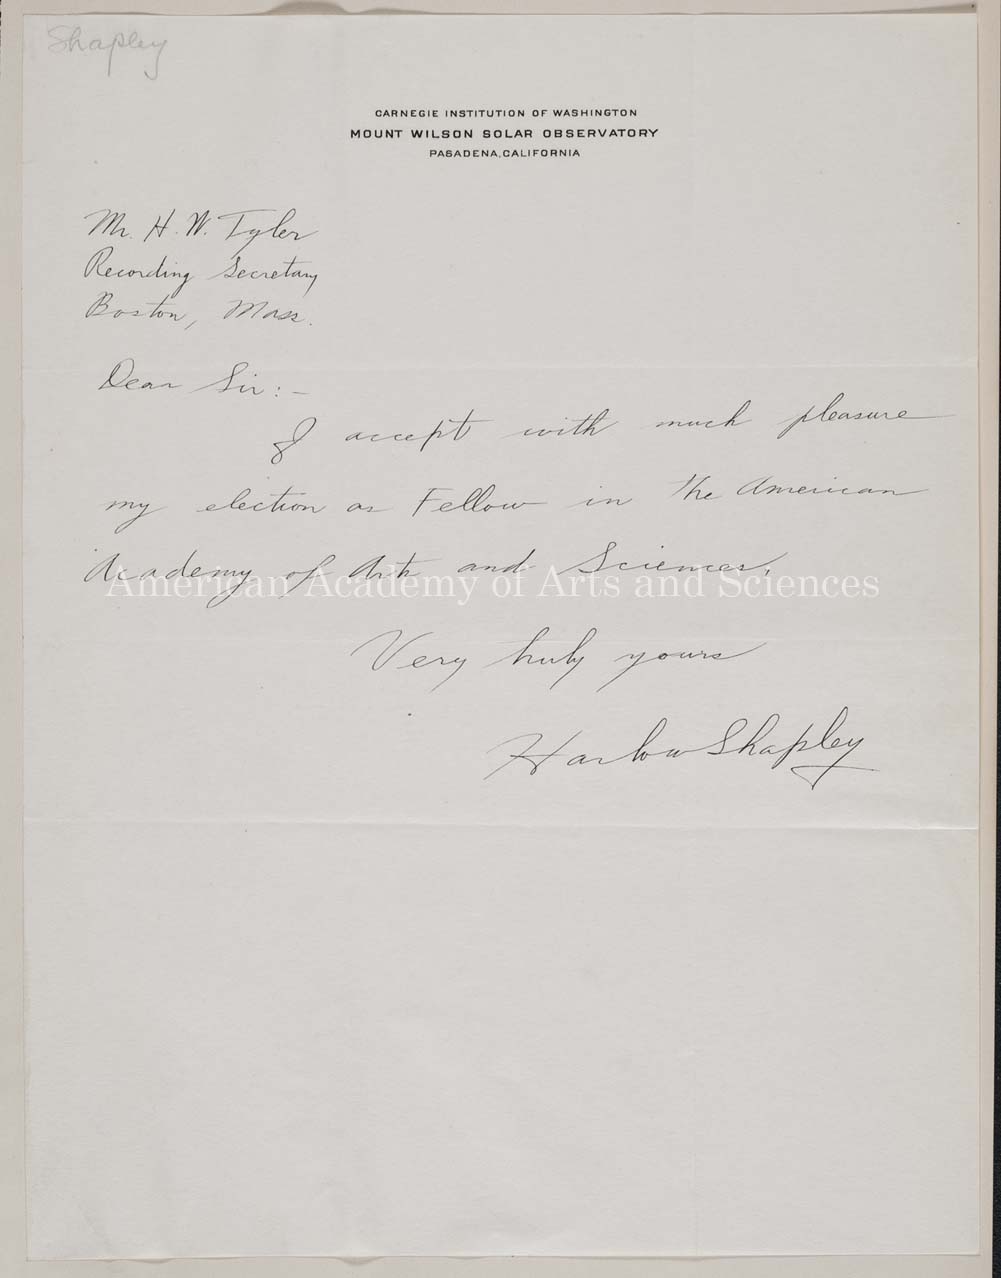 Shapley
CARNEGIE INSTITUTION OF WASHINGTON
MOUNT WILSON SOLAR OBSERVATORY
PASADENA, CALIFORNIA
Mr. H. W. Tyler
Recording Secretary
Boston, Mass.
Dear Sir:-
I accept with much pleasure
my election as Fellow in the American
Academy of Arts and Sciences.
American Academy of Arts and Sciences
Very truly yours
Harlow Shapley